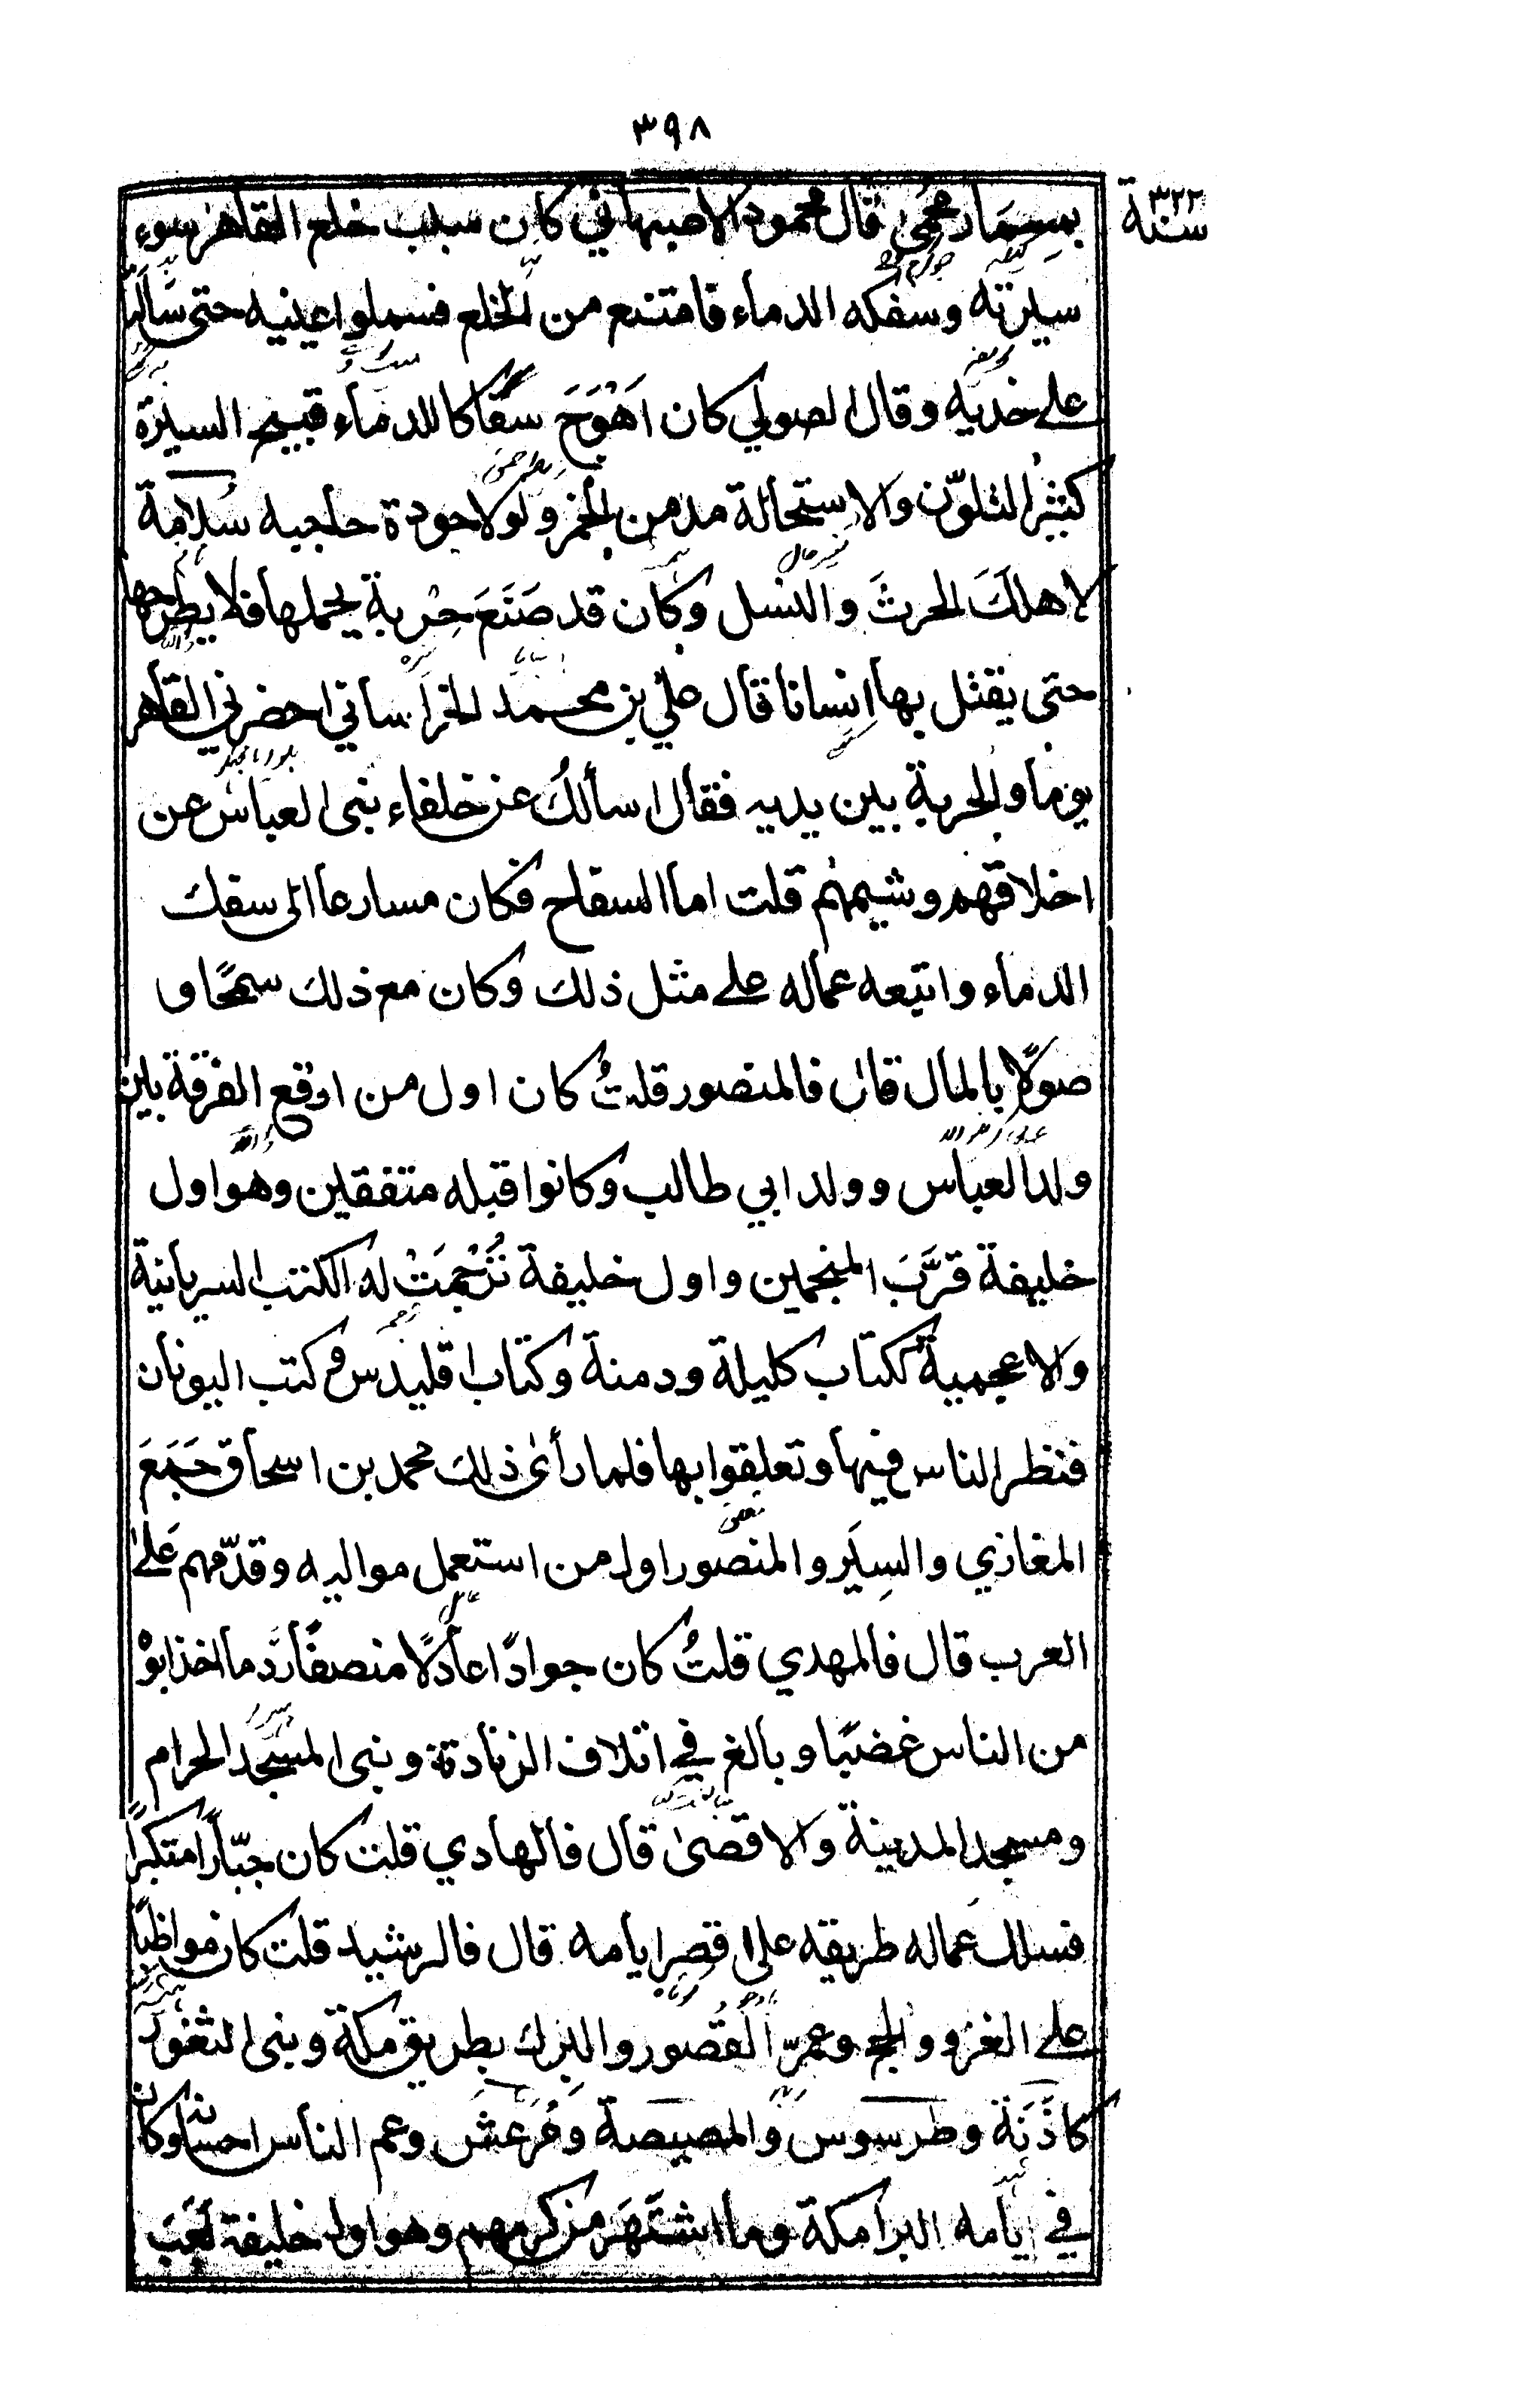 ٣٩٨
سنة ٣٢٢
بمسمار محمى قال محمود الاصبهاني كان سبب خلع القاهر سوء
سيرته وسفكه الدماء فامتنع من الخلع فسملوا عينيه حتى سالتا
على خديه وقال الصولي كان اَهْوَجَ سفّاكا للدماء قبيح السيرة
كثير التلوّن والاستحالة مدمن الخمر ولولا جودة حاجبه سلامة
لاهلكَ الحرثَ والنسل وكان قد صَنَعَ حِرْبة يحملها فلا يطرحها
حتى يقتل بها انسانا قال علي بن محمد الخراساني احضرني القاهر
يوما والحربة بين يديه فقال اسألكُ عن خلفاء بني العباس عن
اخلاقهم وشيمهم قلت اما السفاح فكان مسارعا الى سفك
الدماء واتبعه عماله على مثل ذلك وكان مع ذلك سمحًا و
صولا بالمال قال فالمنصور قلتُ كان اول من اوقع الفرقة بين
ولد العباس وولد ابي طالب وكانوا قبله متفقين وهو اول
خليفة قرَّبَ المنجمين واول خليفة تُرْجِمَتْ له الكتب السريانية
والاعجمية ككتاب كليلة ودمنة وكتاب اقليدس وكتب اليونان
فنظر الناس فيها وتعلقوا بها فلما رأى ذلك محمد بن اسحاق جَمَعَ
المغازي والسِيَر والمنصور اول من استعمل مواليه وقدّمهم عَلىٰ
العرب قال فالمهدي قلتُ كان جوادًا عادلًا منصفًا ردَّ ما اخذ ابوْه
من الناس غضبًا وبالغ في اتلاف الزنادقة وبنى المسجد الحرام
ومسجد المدينة والاقصىٰ قال فالهادي قلت كان جبّارًا متكبرًا
فسلك عماله طريقه على قصر ايامه قال فالرشيد قلت كان مواظبًا
على الغزو والحج وعمرّ القُصور والبِرك بطريق مكة وبنى الثغور
كاذَنَة وطرسوس والمصيصة ومَرعش وعم الناس احسانه وكان
في ايامه البرامكة وما اشتَهَر من كرمهم وهو اول خليفة لَعِبَ